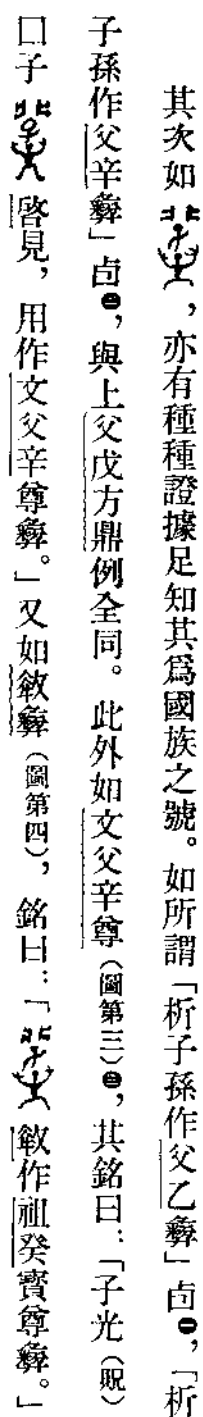 其次如，亦有種種證據足知其爲國族之號。如所謂「析子孫作父乙彝」卣㊀，「析
子孫作父辛彝」卣㊁，與上父戊方鼎例全同。此外如文父辛尊（圖第三）㊂，其銘曰：「子光（貺）
囗子啓見，用作文父辛尊彝。」又如㪤彝（圖第四），銘曰：「㪤作祖癸寶尊彝。」